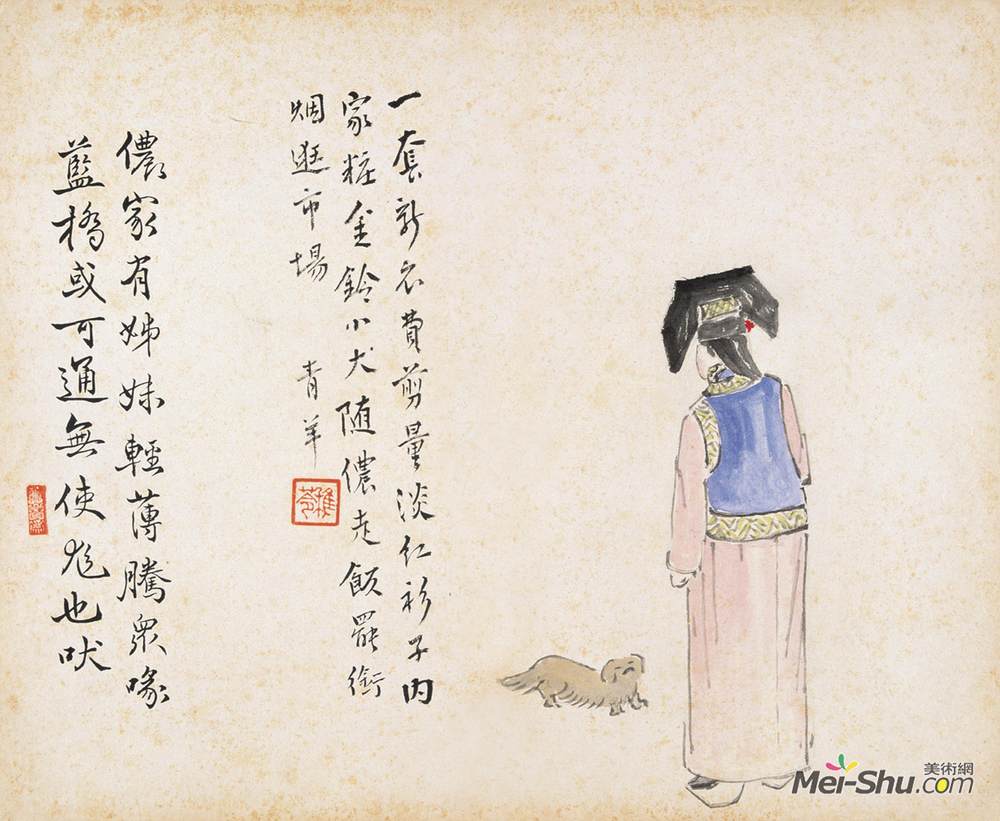 一套新衣費剪量淡红衫子内
家粧金鈴小犬随儂走飯罷銜
烟逛市場
青羊
儂家有姊妹輕薄騰衆喙
藍橋或可通無使尨也吠
美術網
Mei-Shu.com